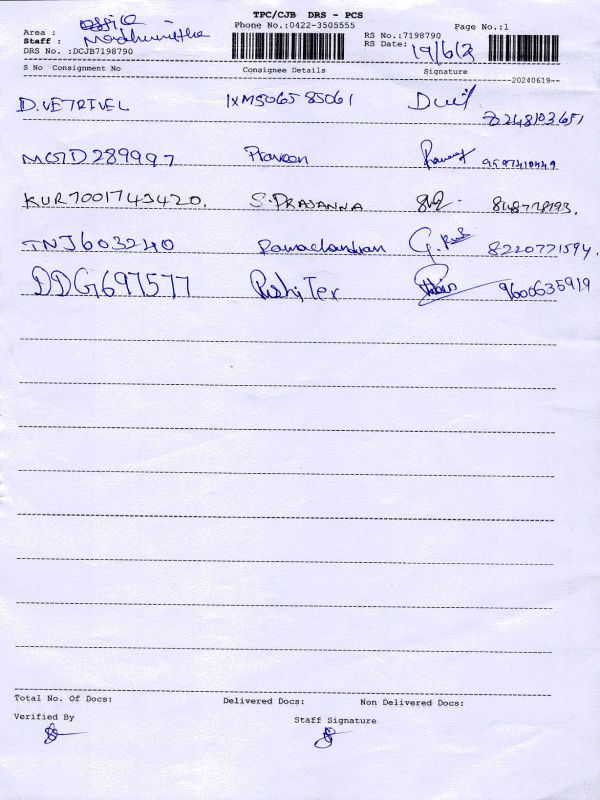 TPC/CJB DRS - PCS
Area : office Phone No.:0422-3505555 Page No.:1
Staff : Madhumitha RS No.:7198790
DRS No. :DCJB7198790 RS Date: 19/6/2
S No Consignment No Consignee Details Signature
--20240619--
D.VETRIVEL IXM506585061 70248103651
MGD289997 Praveen
KUR7001743420. S.PRASANNA
TNJ603240 Ramachandran 8220771594.
DDG697577 Rishi Tex 9600635919
Total No. Of Docs: Delivered Docs: Non Delivered Docs:
Verified By Staff Signature